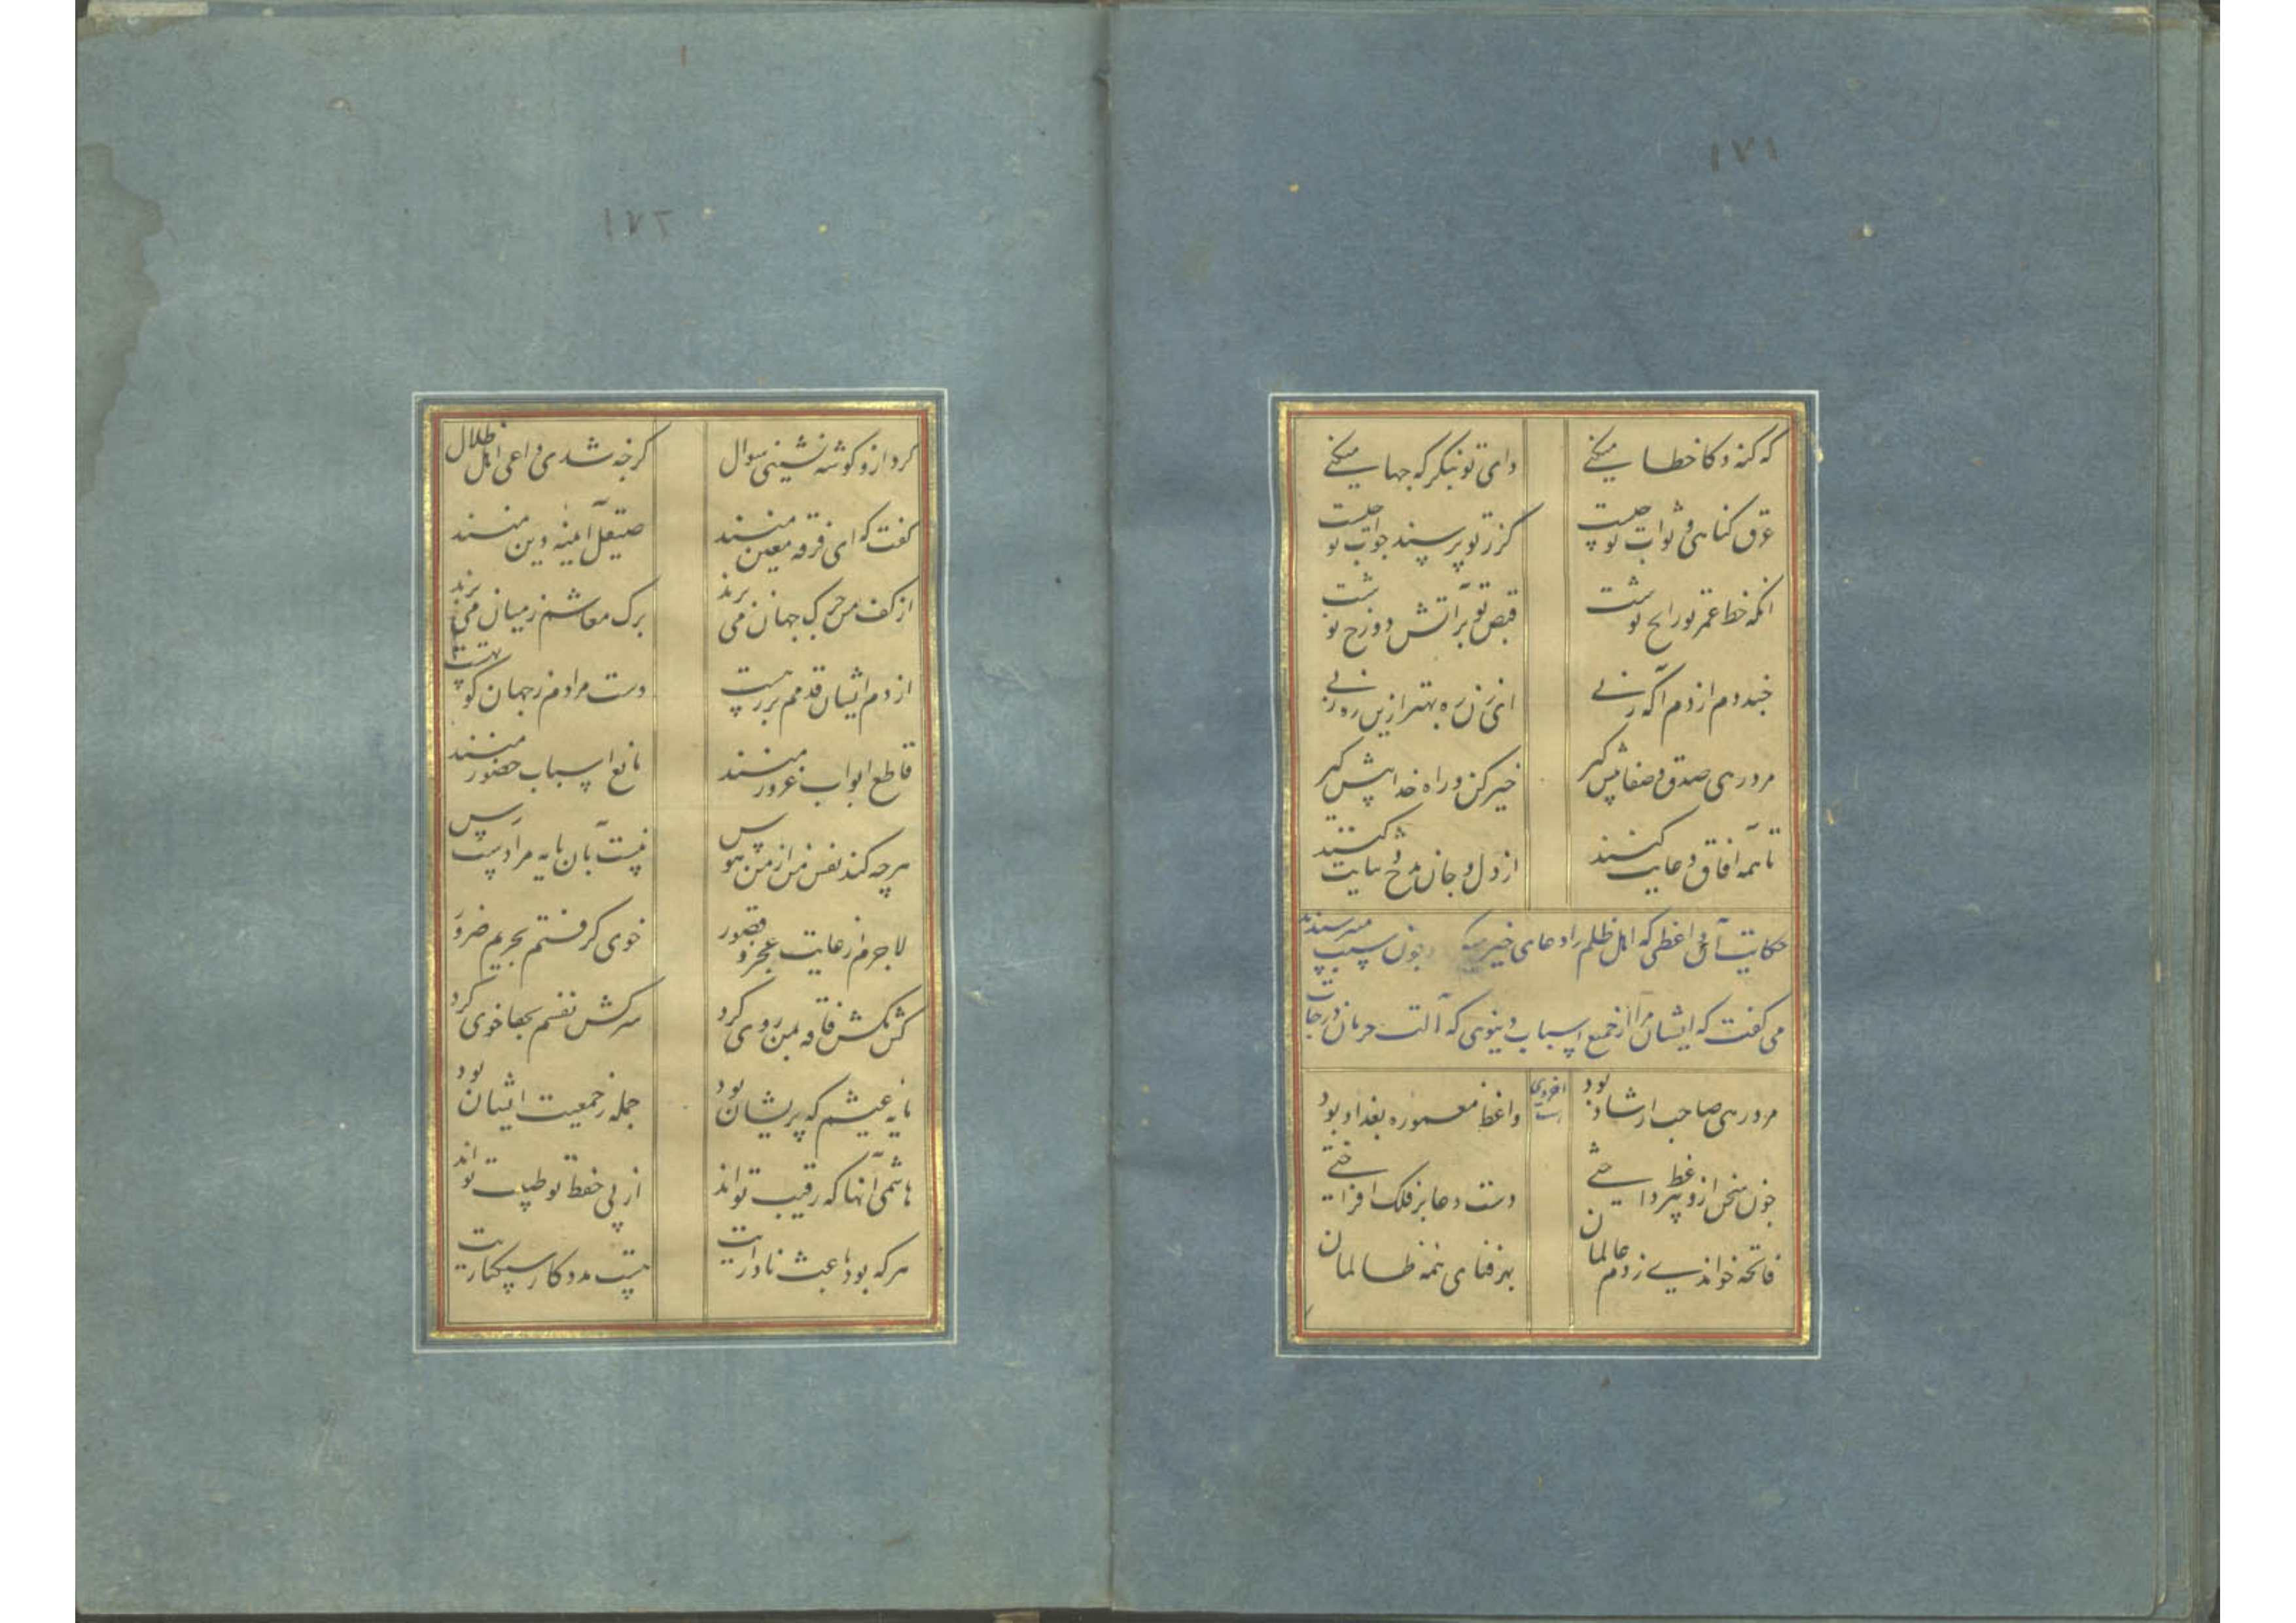 ۱۷۱
که کنه و کا خطا میکنے وای تو بنگر که جها میکنے
غرق کناهی و ثواب تو چیست کز تو بپرسند جواب تو چیست
انکه خط عمر تو رایج نوشت قبض تو بر آتش دوزخ نوشت
چند دم از دم اکه زنی ای زن ره بهتر ازین ره زنی
مرد رهی صدق و صفا پیش کیر خیر کن و راه خدا پیش کیر
تا همه افاق دعایت کنند از دل و جان مدح و ثنایت کنند
حکایت آن واعظی که اهل ظلم را دعای خیر میکرد چون سبب میپرسیدند
می کفت که ایشان مرا از جمیع اسباب دینوی که آلت حرمان درجات
اخرویست
مرد رهی صاحب ارشاد بود واعظ معموره بغداد بود
چون سخن از وعظ بپرداختی دست دعا بر فلک افراختی
فاتحه خواندے ز دم عالمان بهر فنای همه ظالمان
۱۷۲
کرد ازو کوشه نشینی سوال کرچه شدی داعی اهل ظلال
کفت که ای فرقه معین منند صیقل آینه دین منند
از کف من حرب جهان می برند برک معاشم ز میان می برند
از دم ایشان قدمم بر رهست دست مرادم ز جهان کوتهست
قاطع ابواب غرور منند مانع اسباب حضور منند
هرچه کند نفس من از من هوس نیست بآن مایه مرا دسترس
لاجرم از رعایت عجز و قصور خوی کرفتم بحریم ضرور
کش مکش فاقه بمن روی کرد سرکش نفسم بجفا خوی کرد
مایه عیشم که پریشان بود جمله ز جمعیت ایشان بود
هاشمی آنها که رقیب تواند از پی حفظ تو طبیب تواند
هرکه بود باعث ناداریت هست مددکار سبکباریت